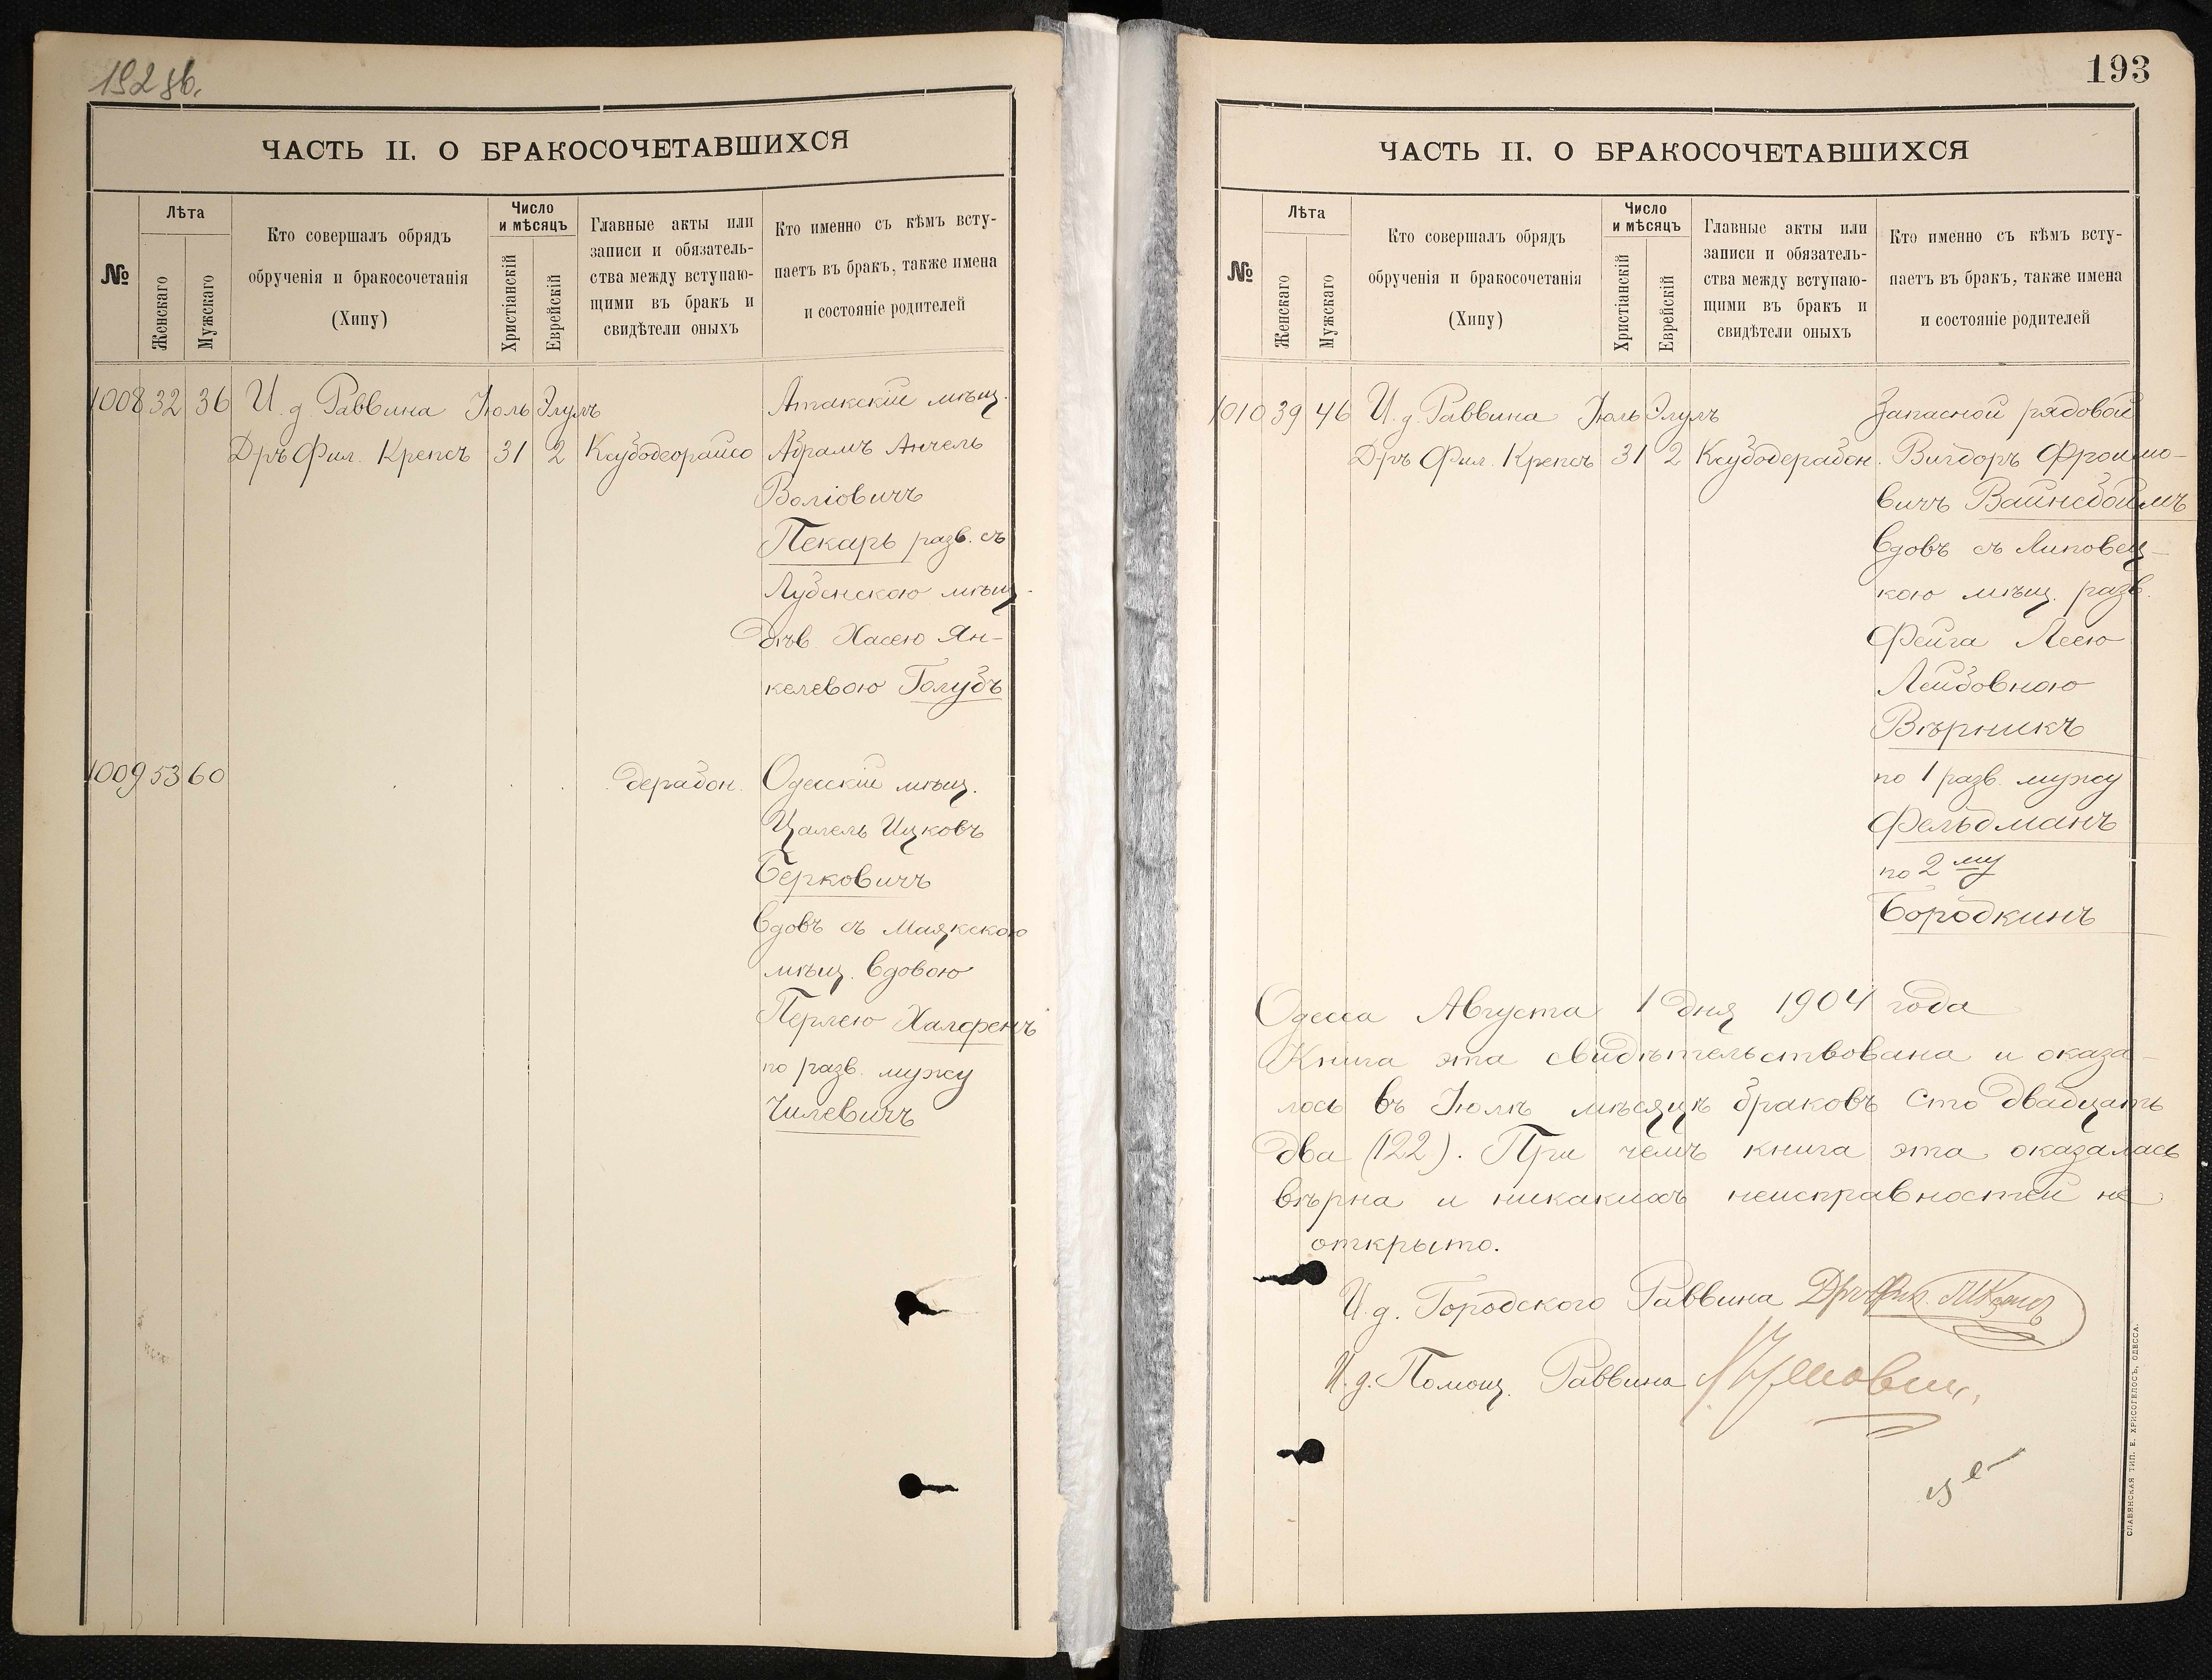 192 об.
ЧАСТЬ II. О БРАКОСОЧЕТАВШИХСЯ
№
Лѣта
Женскаго
Мужскаго
Кто совершалъ обрядъ
обрученія и бракосочетанія
(Хипу)
Число
и мѣсяцъ
Христіанскій
Еврейскій
Главные акты или
записи и обязатель-
ства между вступаю-
щими въ бракъ и
свидѣтели оныхъ
Кто именно съ кѣмъ всту-
паетъ въ бракъ, также имена
и состояніе родителей
1008 32 36 И. д. Раввина Іюль Элулъ Атакскій мѣщ.
Дръ Фил. Крепсъ 31 2 Ксубодеорайсо Абрамъ Анчель
Воліовичъ
Пекарь разв. съ
Лубенскою мѣщ.
дѣв. Хасею Ян-
келевою Голубъ
1009 53 60 дерабон. Одесскій мѣщ.
Цалель Ицковъ
Берковичъ
вдовъ съ Маякскою
мѣщ. вдовою
Перлею Халфенъ
по разв. мужу
Чилевичъ
193
ЧАСТЬ II. О БРАКОСОЧЕТАВШИХСЯ
№
Лѣта
Женскаго
Мужскаго
Кто совершалъ обрядъ
обрученія и бракосочетанія
(Хипу)
Число
и мѣсяцъ
Христіанскій
Еврейскій
Главные акты или
записи и обязатель-
ства между вступаю-
щими въ бракъ и
свидѣтели оныхъ
Кто именно съ кѣмъ всту-
паетъ въ бракъ, также имена
и состояніе родителей
1010 39 46 И. д. Раввина Іюль Элулъ Запасной рядовой
Дръ Фил. Крепсъ 31 2 Ксубодерабон. Вигдоръ Фроимо-
вичъ Вайнсбоймъ
вдовъ съ Липовец-
кою мѣщ. разв.
Фейга Леею
Лейбовною
Вѣрникъ
по 1 разв. мужу
Фельдманъ
по 2му
Бородкинъ
Одесса Августа 1 дня 1904 года
Книга эта свидѣтельствована и оказа-
лось въ Іюлѣ мѣсяцѣ браковъ сто двадцать
два (122). При чемъ книга эта оказалась
вѣрна и никакихъ неисправностей не
открыто.
И. д. Городского Раввина Дръ Фил. Крепсъ
И. д. Помощ. Раввина
СЛАВЯНСКАЯ ТИП. Е. ХРИСОГЕЛОСЪ, ОДЕССА.